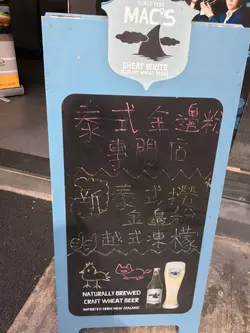 MAC'S
GREAT WHITE
CLOUDY WHEAT BEER
泰式金邊粉
專門店
新 泰式撈
金邊粉
越式凍檬
NATURALLY BREWED
CRAFT WHEAT BEER
IMPORTED FROM NEW ZEALAND